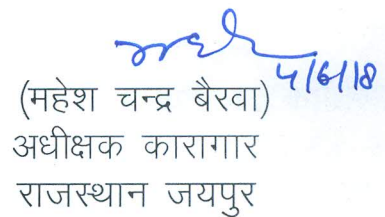 4/6/18
(महेश चन्द्र बैरवा)
अधीक्षक कारागार
राजस्थान जयपुर